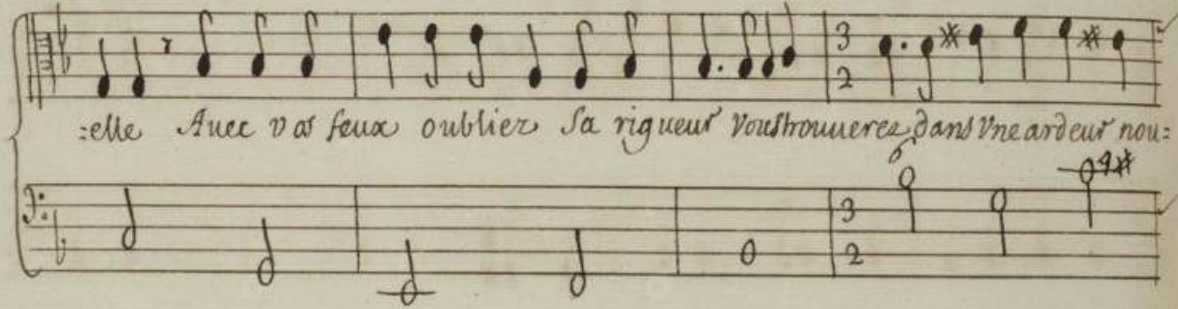 3
2
=elle Auec vos feux oublier Sa rigueur Voustrouuerez dans Vne ardeur nou=
6 4#
3
2